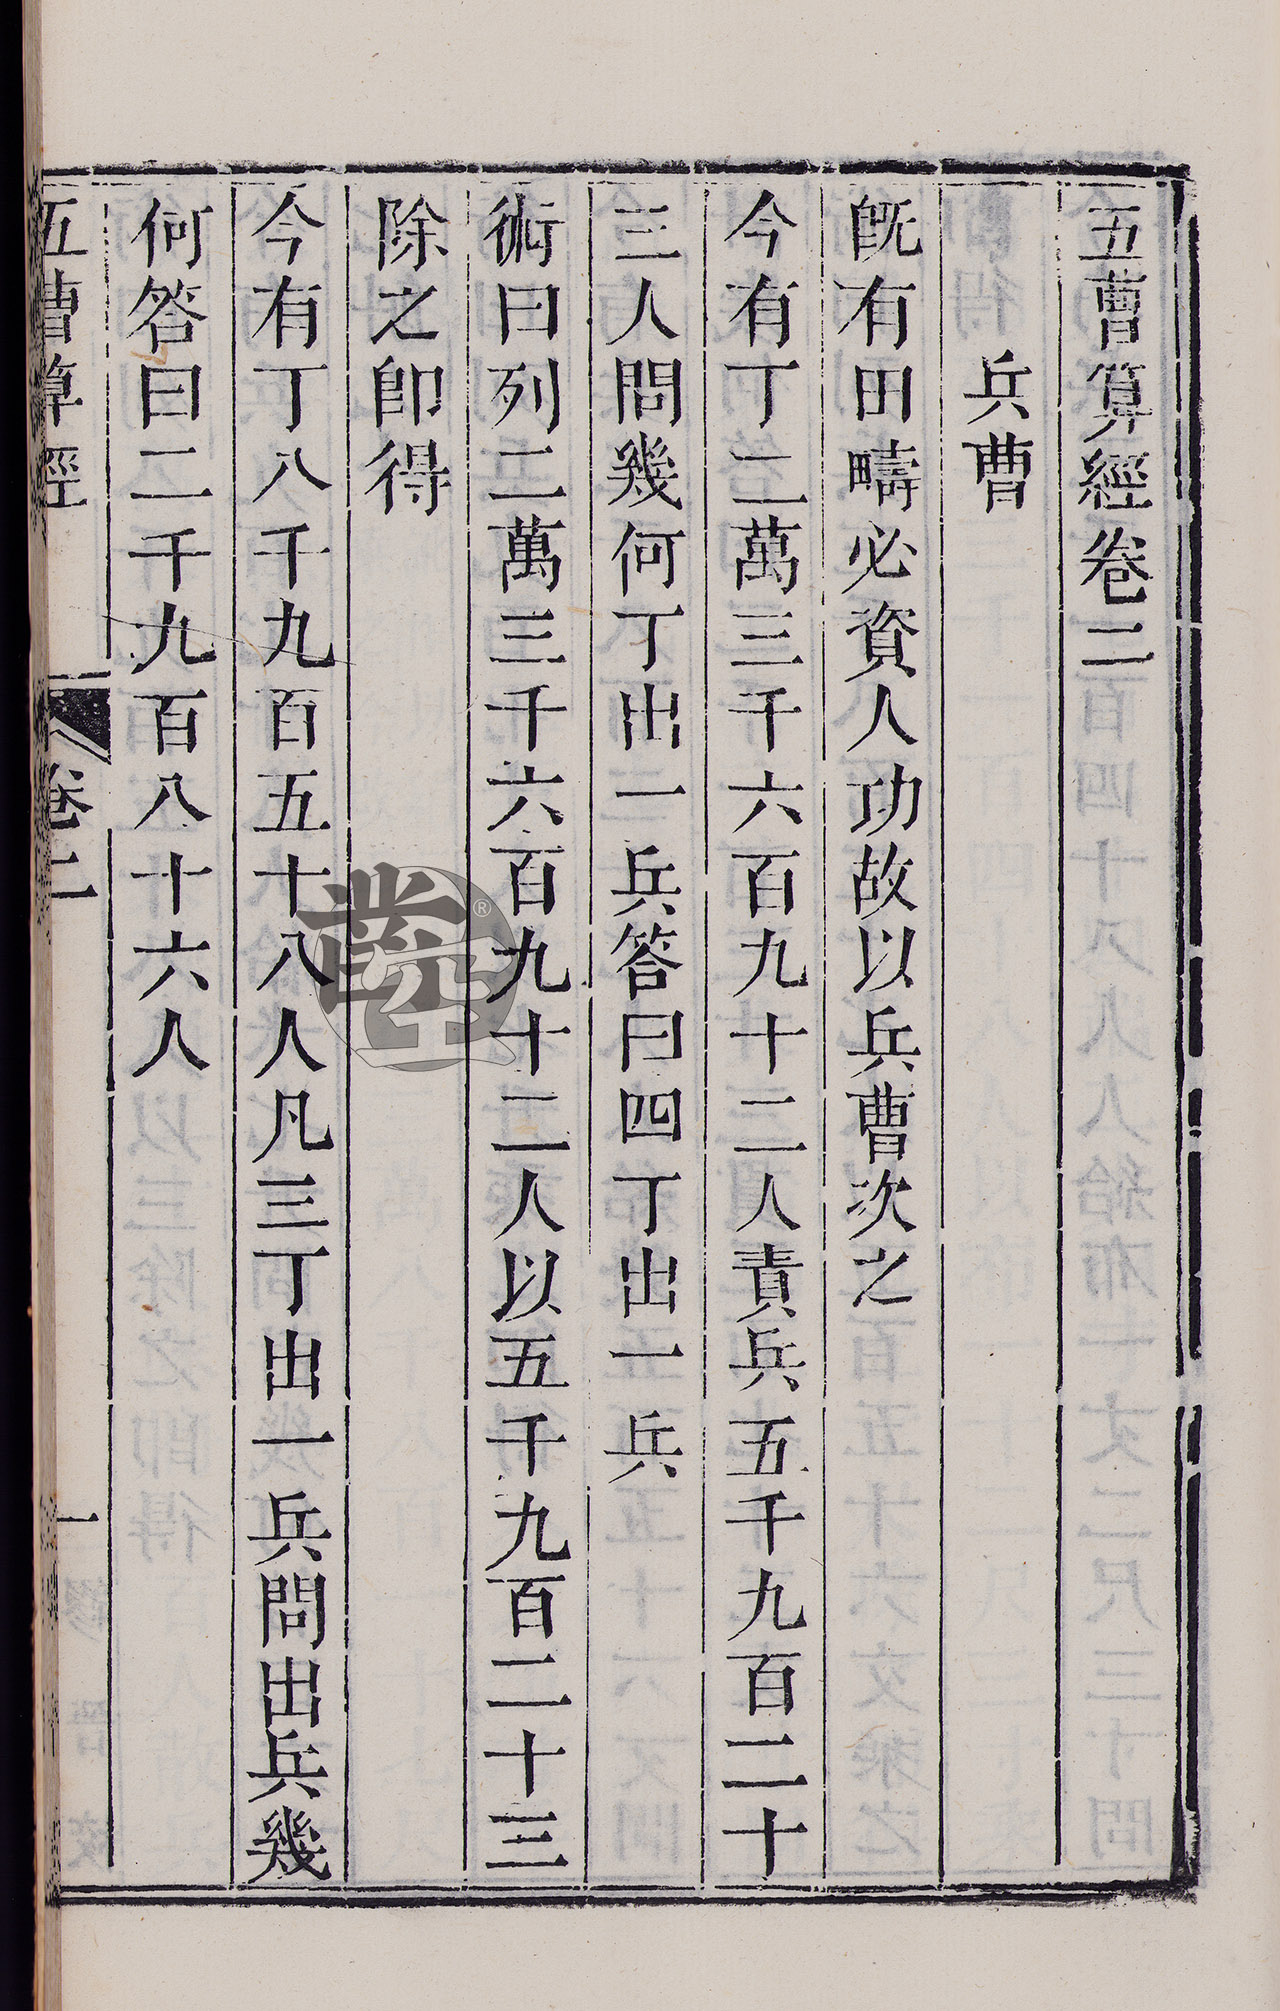 五曹算經卷二
兵曹
旣有田疇必資人功故以兵曹次之
今有丁二萬三千六百九十二人責兵五千九百二十
三人問幾何丁出一兵答曰四丁出一兵
術曰列二萬三千六百九十二人以五千九百二十三
除之卽得
今有丁八千九百五十八人凡三丁出一兵問出兵幾
何答曰二千九百八十六人
五曹算經 卷二 一